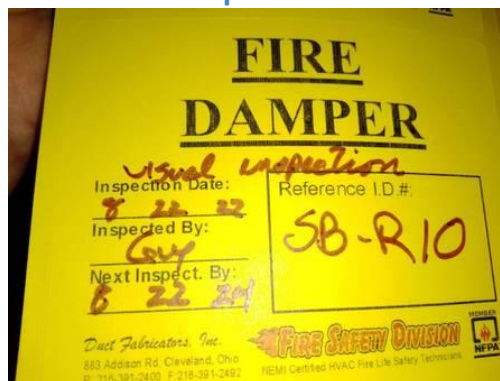 FIRE
DAMPER
visual inspection
Inspection Date:
8 22 22
Inspected By:
Guy
Next Inspect. By:
8 22 24
Reference I.D.#:
SB-R10
Duct Fabricators, Inc.
883 Addison Rd. Cleveland, Ohio
P 216-391-2400 F 216-391-2492
FIRE SAFETY DIVISION
NEMI Certified HVAC Fire Life Safety Technicians
MEMBER
NFPA